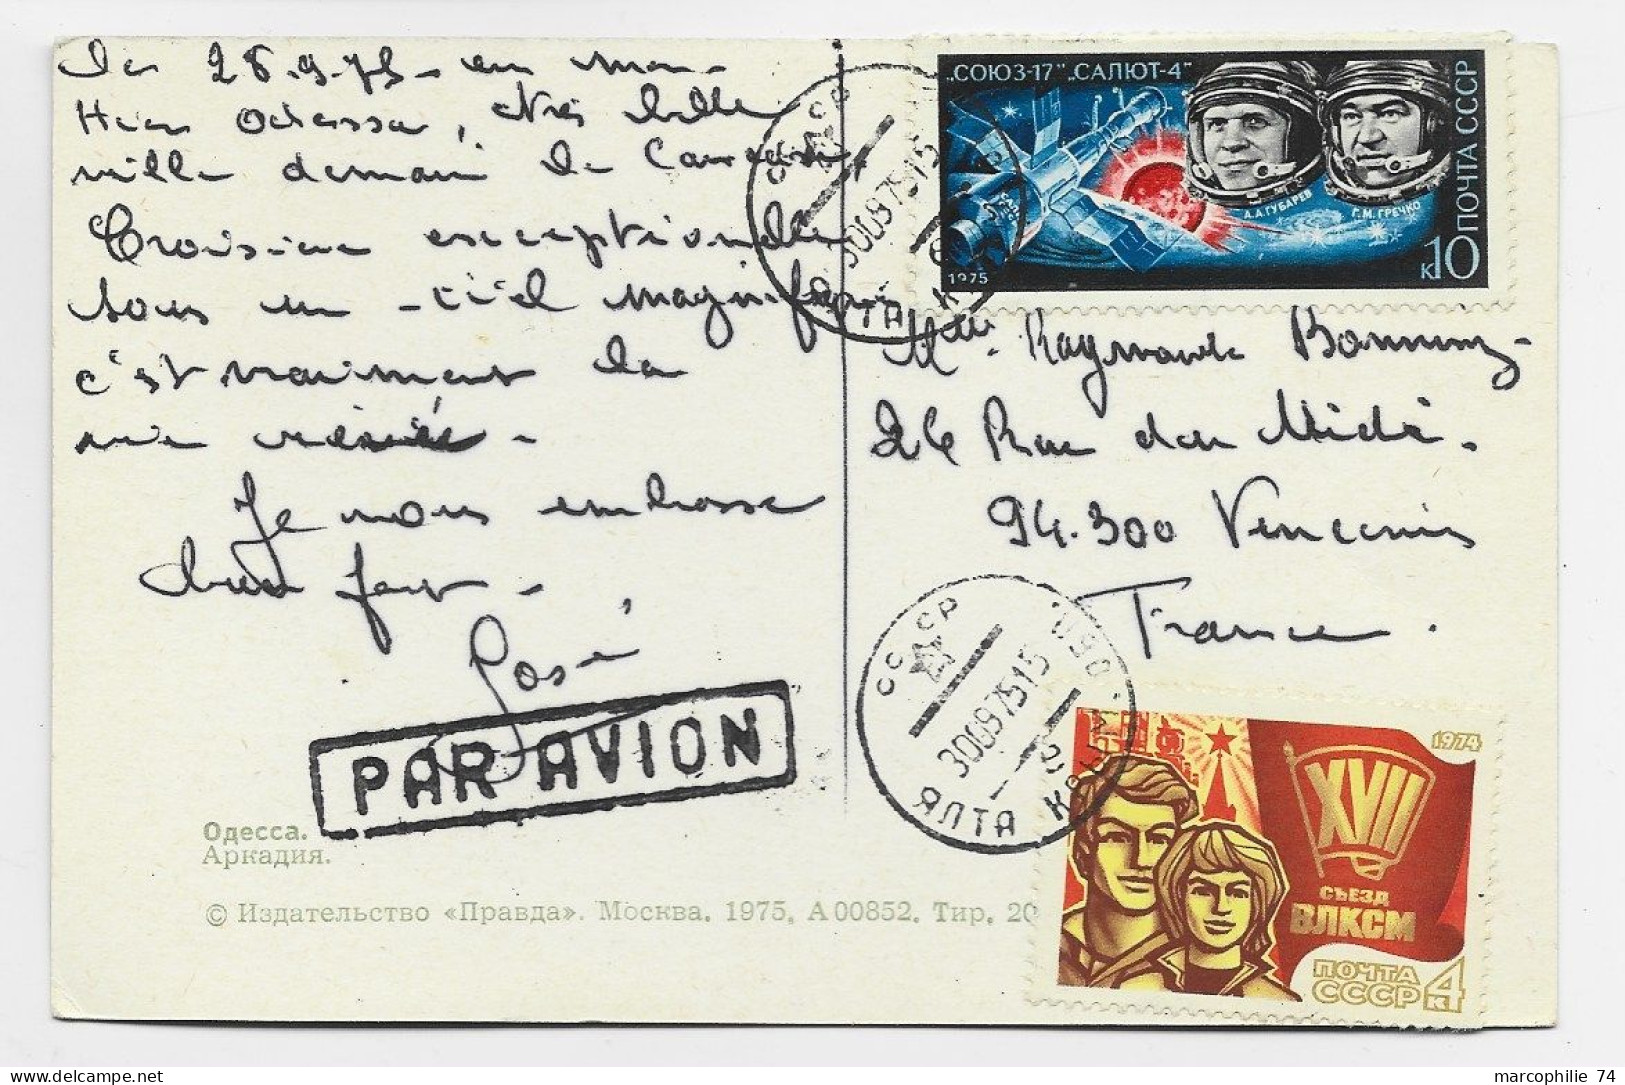 Le 28.9.75 - en mer -
Hier Odessa, très belle
ville demain le Caucase
Croisière exceptionnelle
sous un ciel magnifique
c'est vraiment la
vie rêvée -
Je vous embrasse
bien fort -
José
PAR AVION
Одесса.
Аркадия.
© Издательство «Правда». Москва. 1975, А 00852. Тир. 20
СССР
300975 15
ЯЛТА
„СОЮЗ-17" „САЛЮТ-4"
А.А.ГУБАРЕВ Г.М.ГРЕЧКО
1975
к10
ПОЧТА СССР
Mlle. Raymonde
26 Rue du Midi.
94.300 Vincennes
France.
СССР
300975 15
ЯЛТА
1974
XVII
СЪЕЗД
ВЛКСМ
ПОЧТА
СССР
4к
marcophilie 74